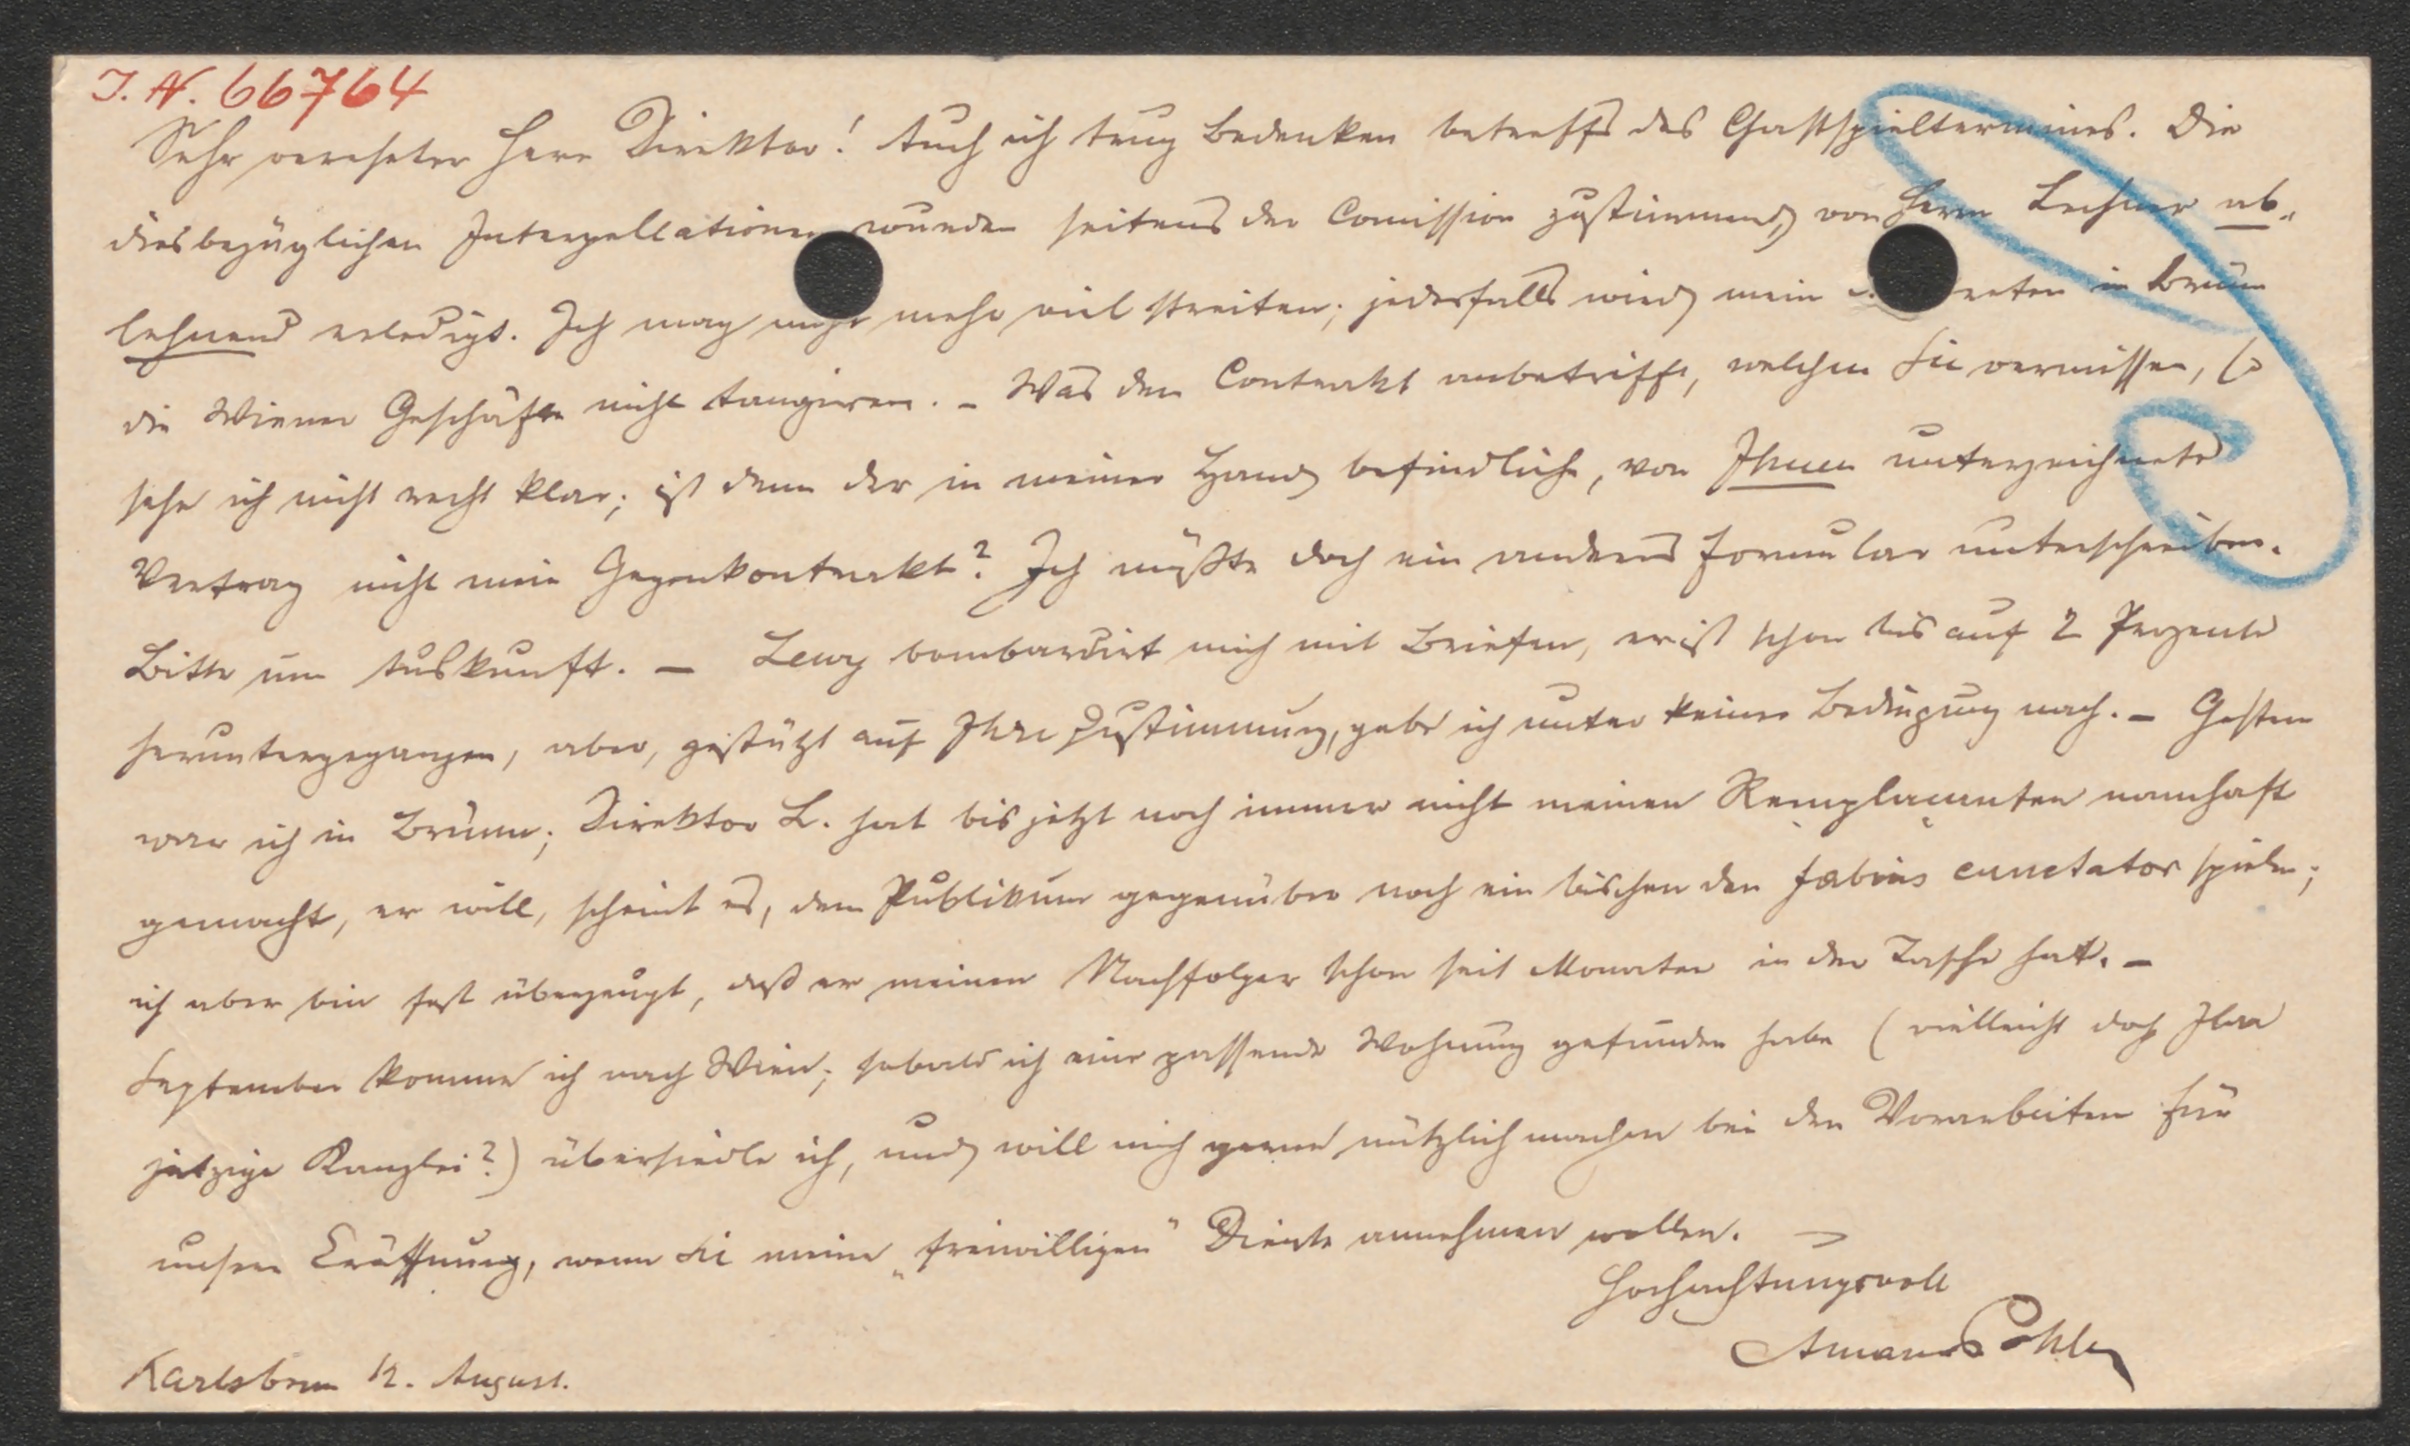 I. N. 66764
Sehr verehrter Herr Direktor! Auch ich trug Bedenken betreffs des Gastspieltermines. Die
diesbezüglichen Interpellationen wurden seitens der Comission zustimmend, von Herrn Lechner ab-
lehnend erledigt. Ich mag nicht mehr viel streiten; jedesfalls wird mein in Brünn
die Wiener Geschäfte nicht tangieren. – Was den Contrakt anbetrifft, welchen Sie vermissen, so
sehe ich nicht recht klar; ist denn der in meiner Hand befindliche, von Ihnen unterzeichnete
Vertrag nicht mein Gegenkontrakt? Ich müßte doch ein anderes Formular unterschreiben.
Bitte um Auskunft. – Lewy bombardirt mich mit Briefen, er ist schon bis auf 2 Perzente
heruntergegangen, aber, gestützt auf Ihre Zustimmung, gebe ich unter keiner Bedingung nach. – Gestern
war ich in Brünn; Direktor L. hat bis jetzt noch immer nicht meinen Remplaçanten namhaft
gemacht, er will, scheint es, dem Publikum gegenüber noch ein bischen den Fabius cunctator spielen;
ich aber bin fest überzeugt, daß er meinen Nachfolger schon seit Monaten in der Tasche hat. –
September komme ich nach Wien; sobald ich eine passende Wohnung gefunden habe (vielleicht doch Ihre
jetzige Kanzlei?) übersiedle ich, und will mich gerne nützlich machen bei den Vorarbeiten für
unsere Eröffnung, wenn Sie meine „freiwilligen" Dienste annehmen wollen. –
Hochachtungsvoll
Karlsbrunn 12. August.